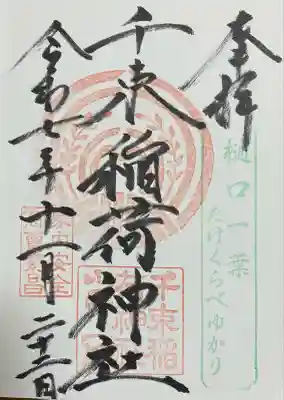 奉拝
樋口一葉
たけくらべゆかり
千束稲荷神社
千束稲
令和七年十一月二十二日
家内安全